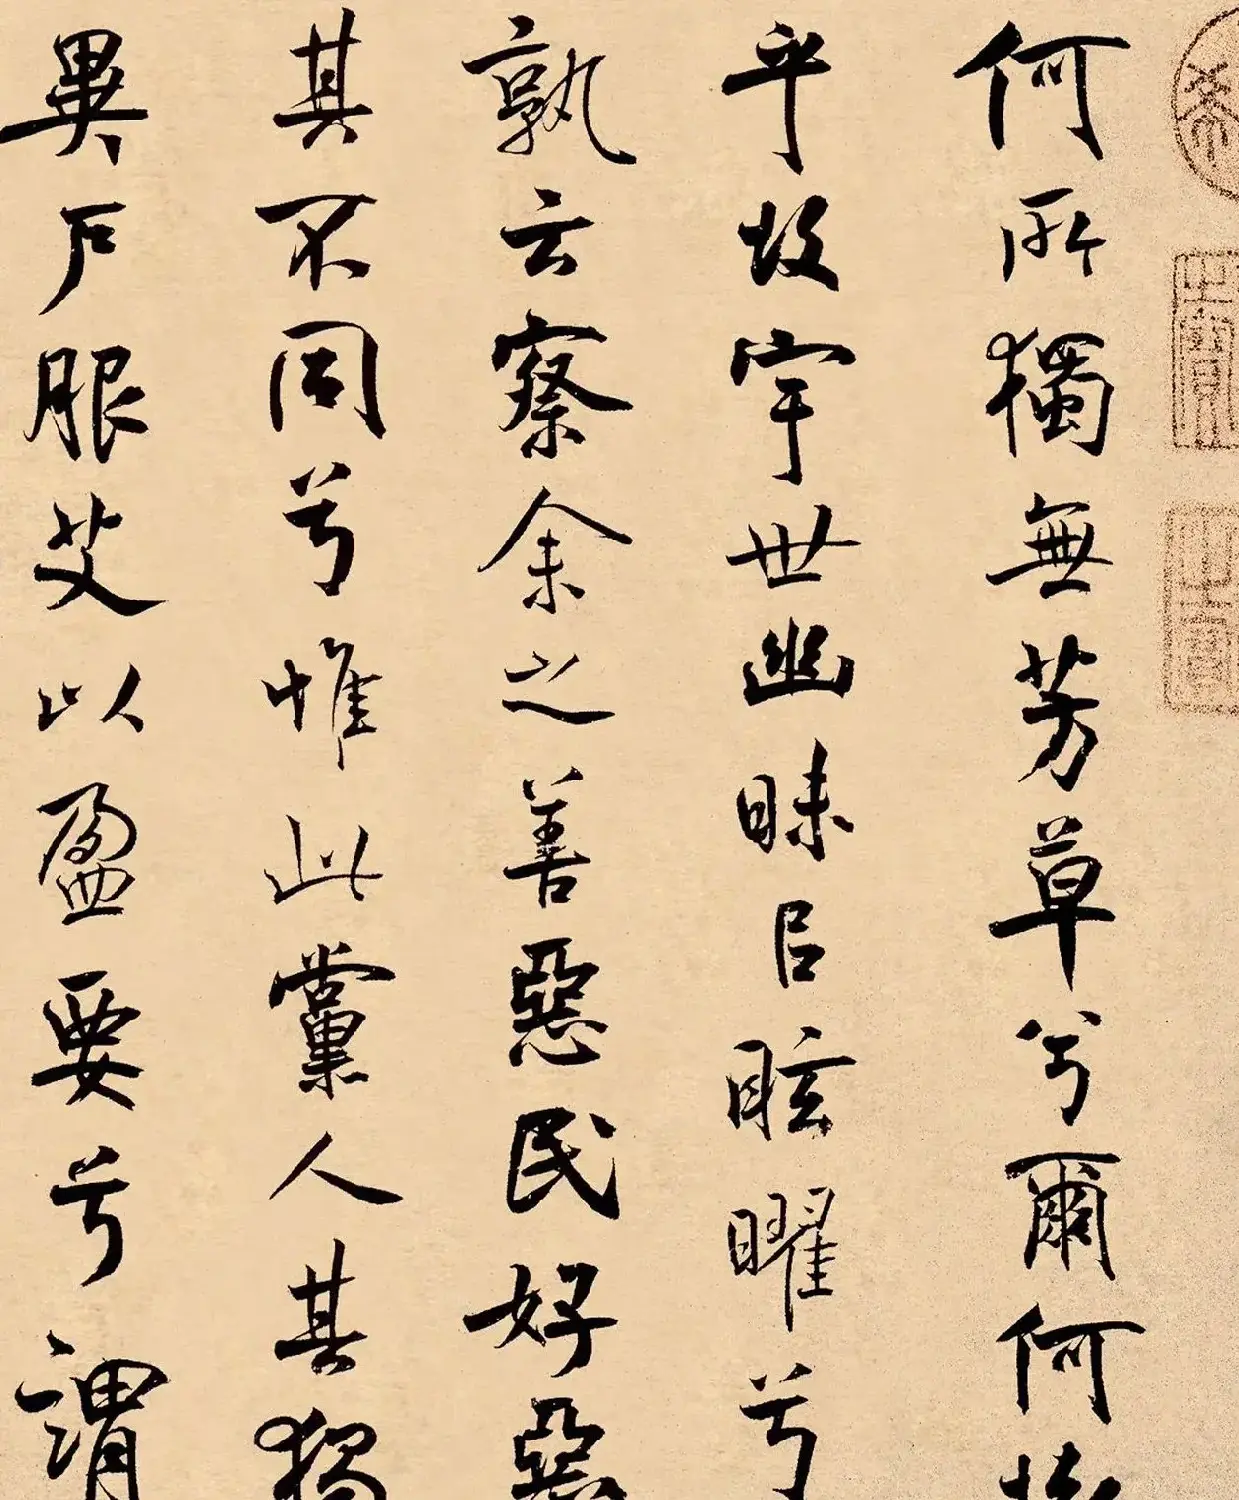 何所獨無芳草兮爾何
乎故宇世幽昧㠯眩曜兮
孰云察余之善惡民好惡
其不同兮惟此黨人其獨
異戶服艾以盈要兮謂